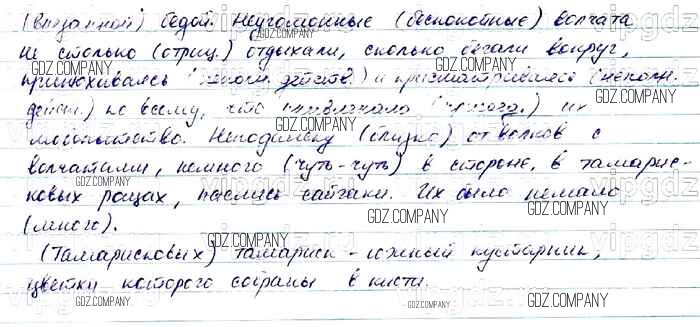 (внезапной) бедой. Неугомонные (беспокойные) волчата
не столько (отриц.) отдыхали, сколько бегали вокруг,
принюхивались действ.) и присматривались (неполн.
действ.) ко всему, что их
любопытство. Неподалёку (близко) от волков с
волчатами, немного (чуть-чуть) в стороне, в тамарис-
ковых рощах, паслись сайгаки. Их было немало
(много).
(Тамарисковых) тамариск - южный кустарник,
цветки которого собраны в кисти.
GDZ.COMPANY
GDZ.COMPANY
GDZ.COMPANY
GDZ.COMPANY
GDZ.COMPANY
GDZ.COMPANY
GDZ.COMPANY
GDZ.COMPANY
GDZ.COMPANY
GDZ.COMPANY
GDZ.COMPANY
GDZ.COMPANY
GDZ.COMPANY
GDZ.COMPANY